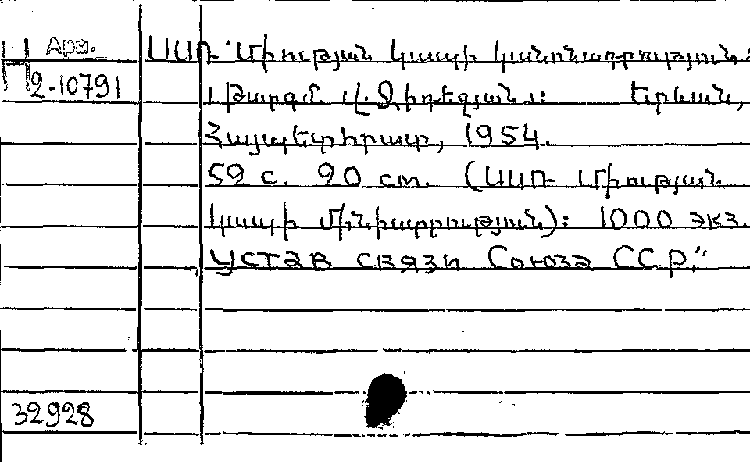 Н Арм.
2-10791
ՍՍՌ Միության կապի կանոնադրություն:
Թարգմ. Երևան,
Հայպետհրատ, 1954.
59 с. 20 см. (ՍՍՌ Միության
կապի մինիստրություն): 1000 экз.
Устав связи Союза ССР."
32928